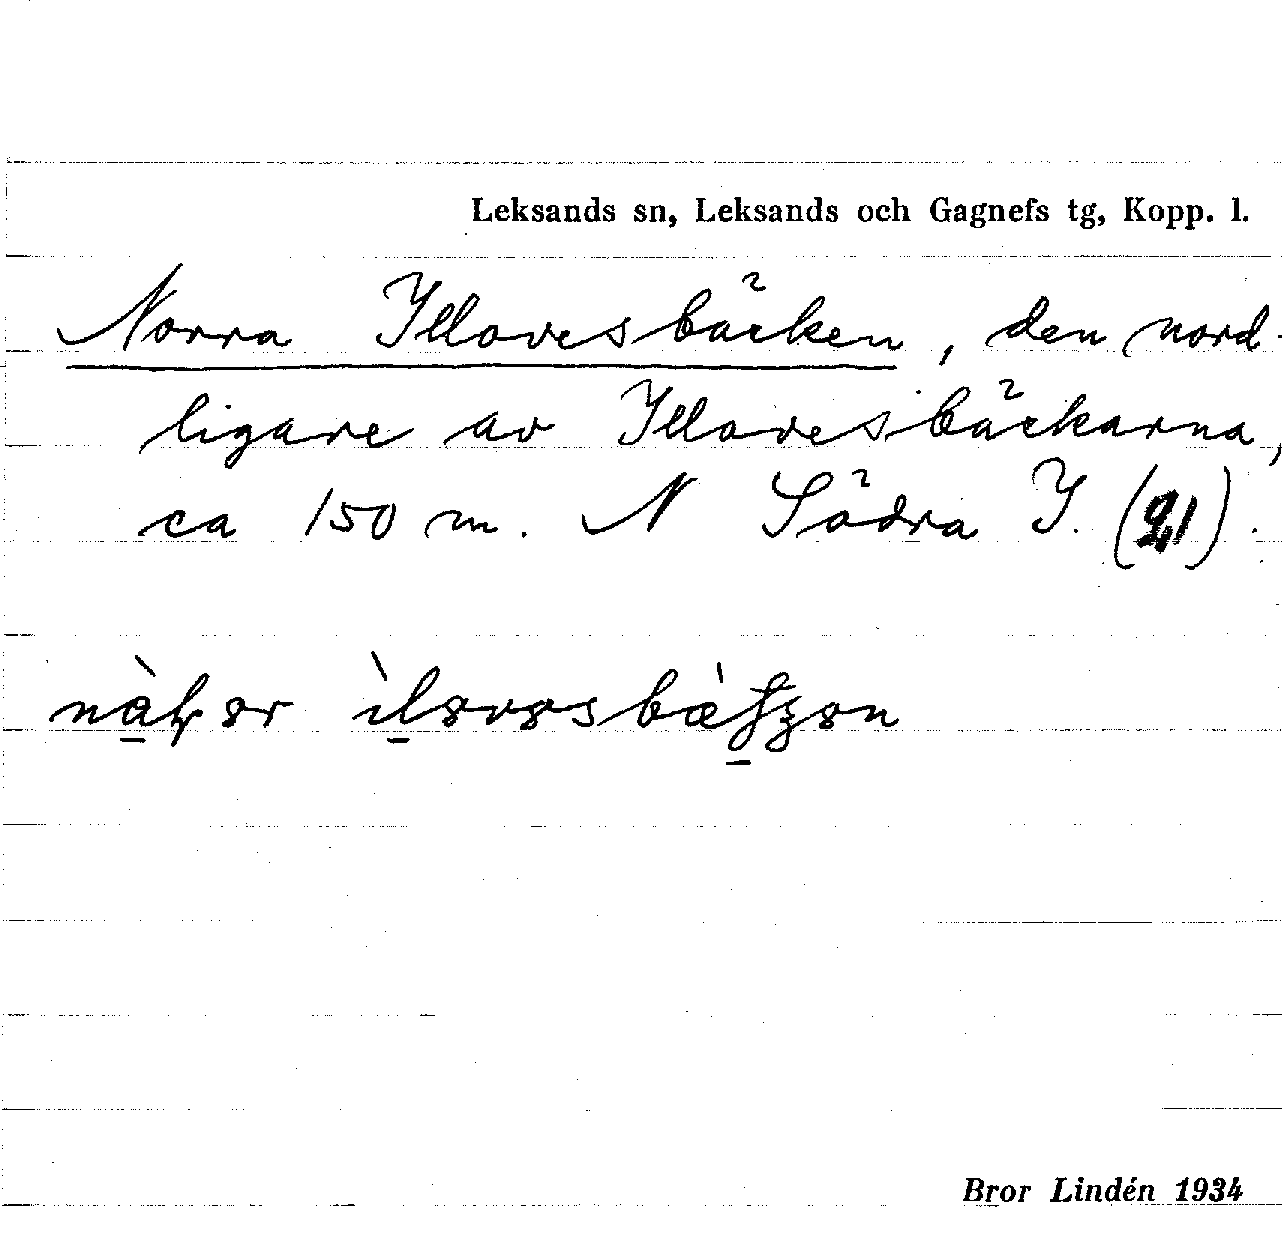 Leksands sn, Leksands och Gagnefs tg, Kopp. l.
Norra Yllovesbäcken, den nord-
ligare av Yllovesbäckarna,
ca 150 m. N Södra Y. (21).
Bror Lindén 1934